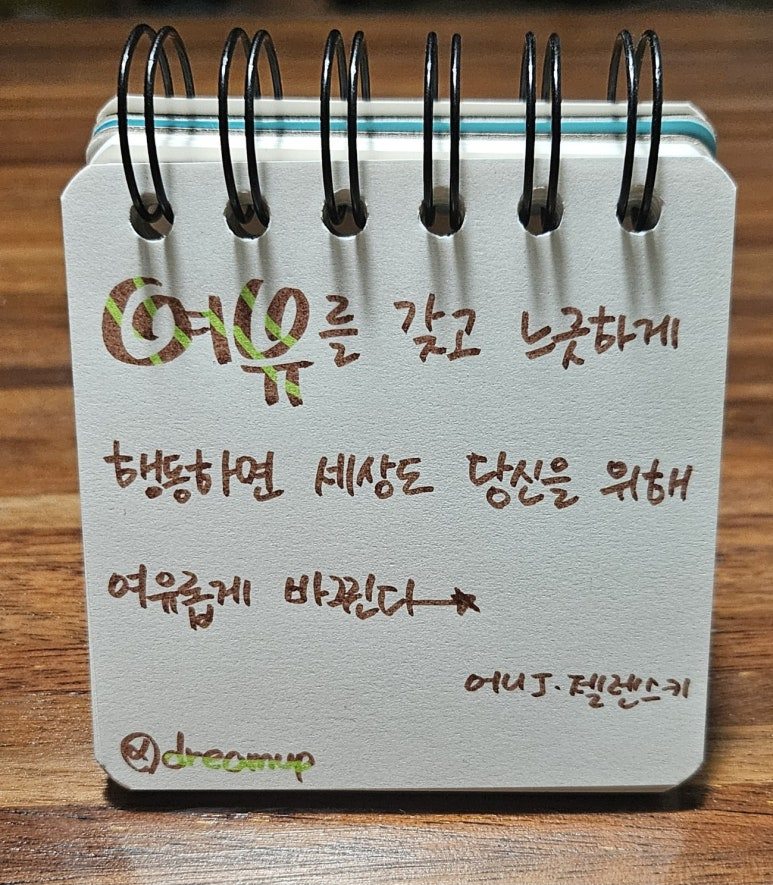 여유를 갖고 느긋하게
행동하면 세상도 당신을 위해
여유롭게 바뀐다
어니 J. 젤렌스키
@dreamup